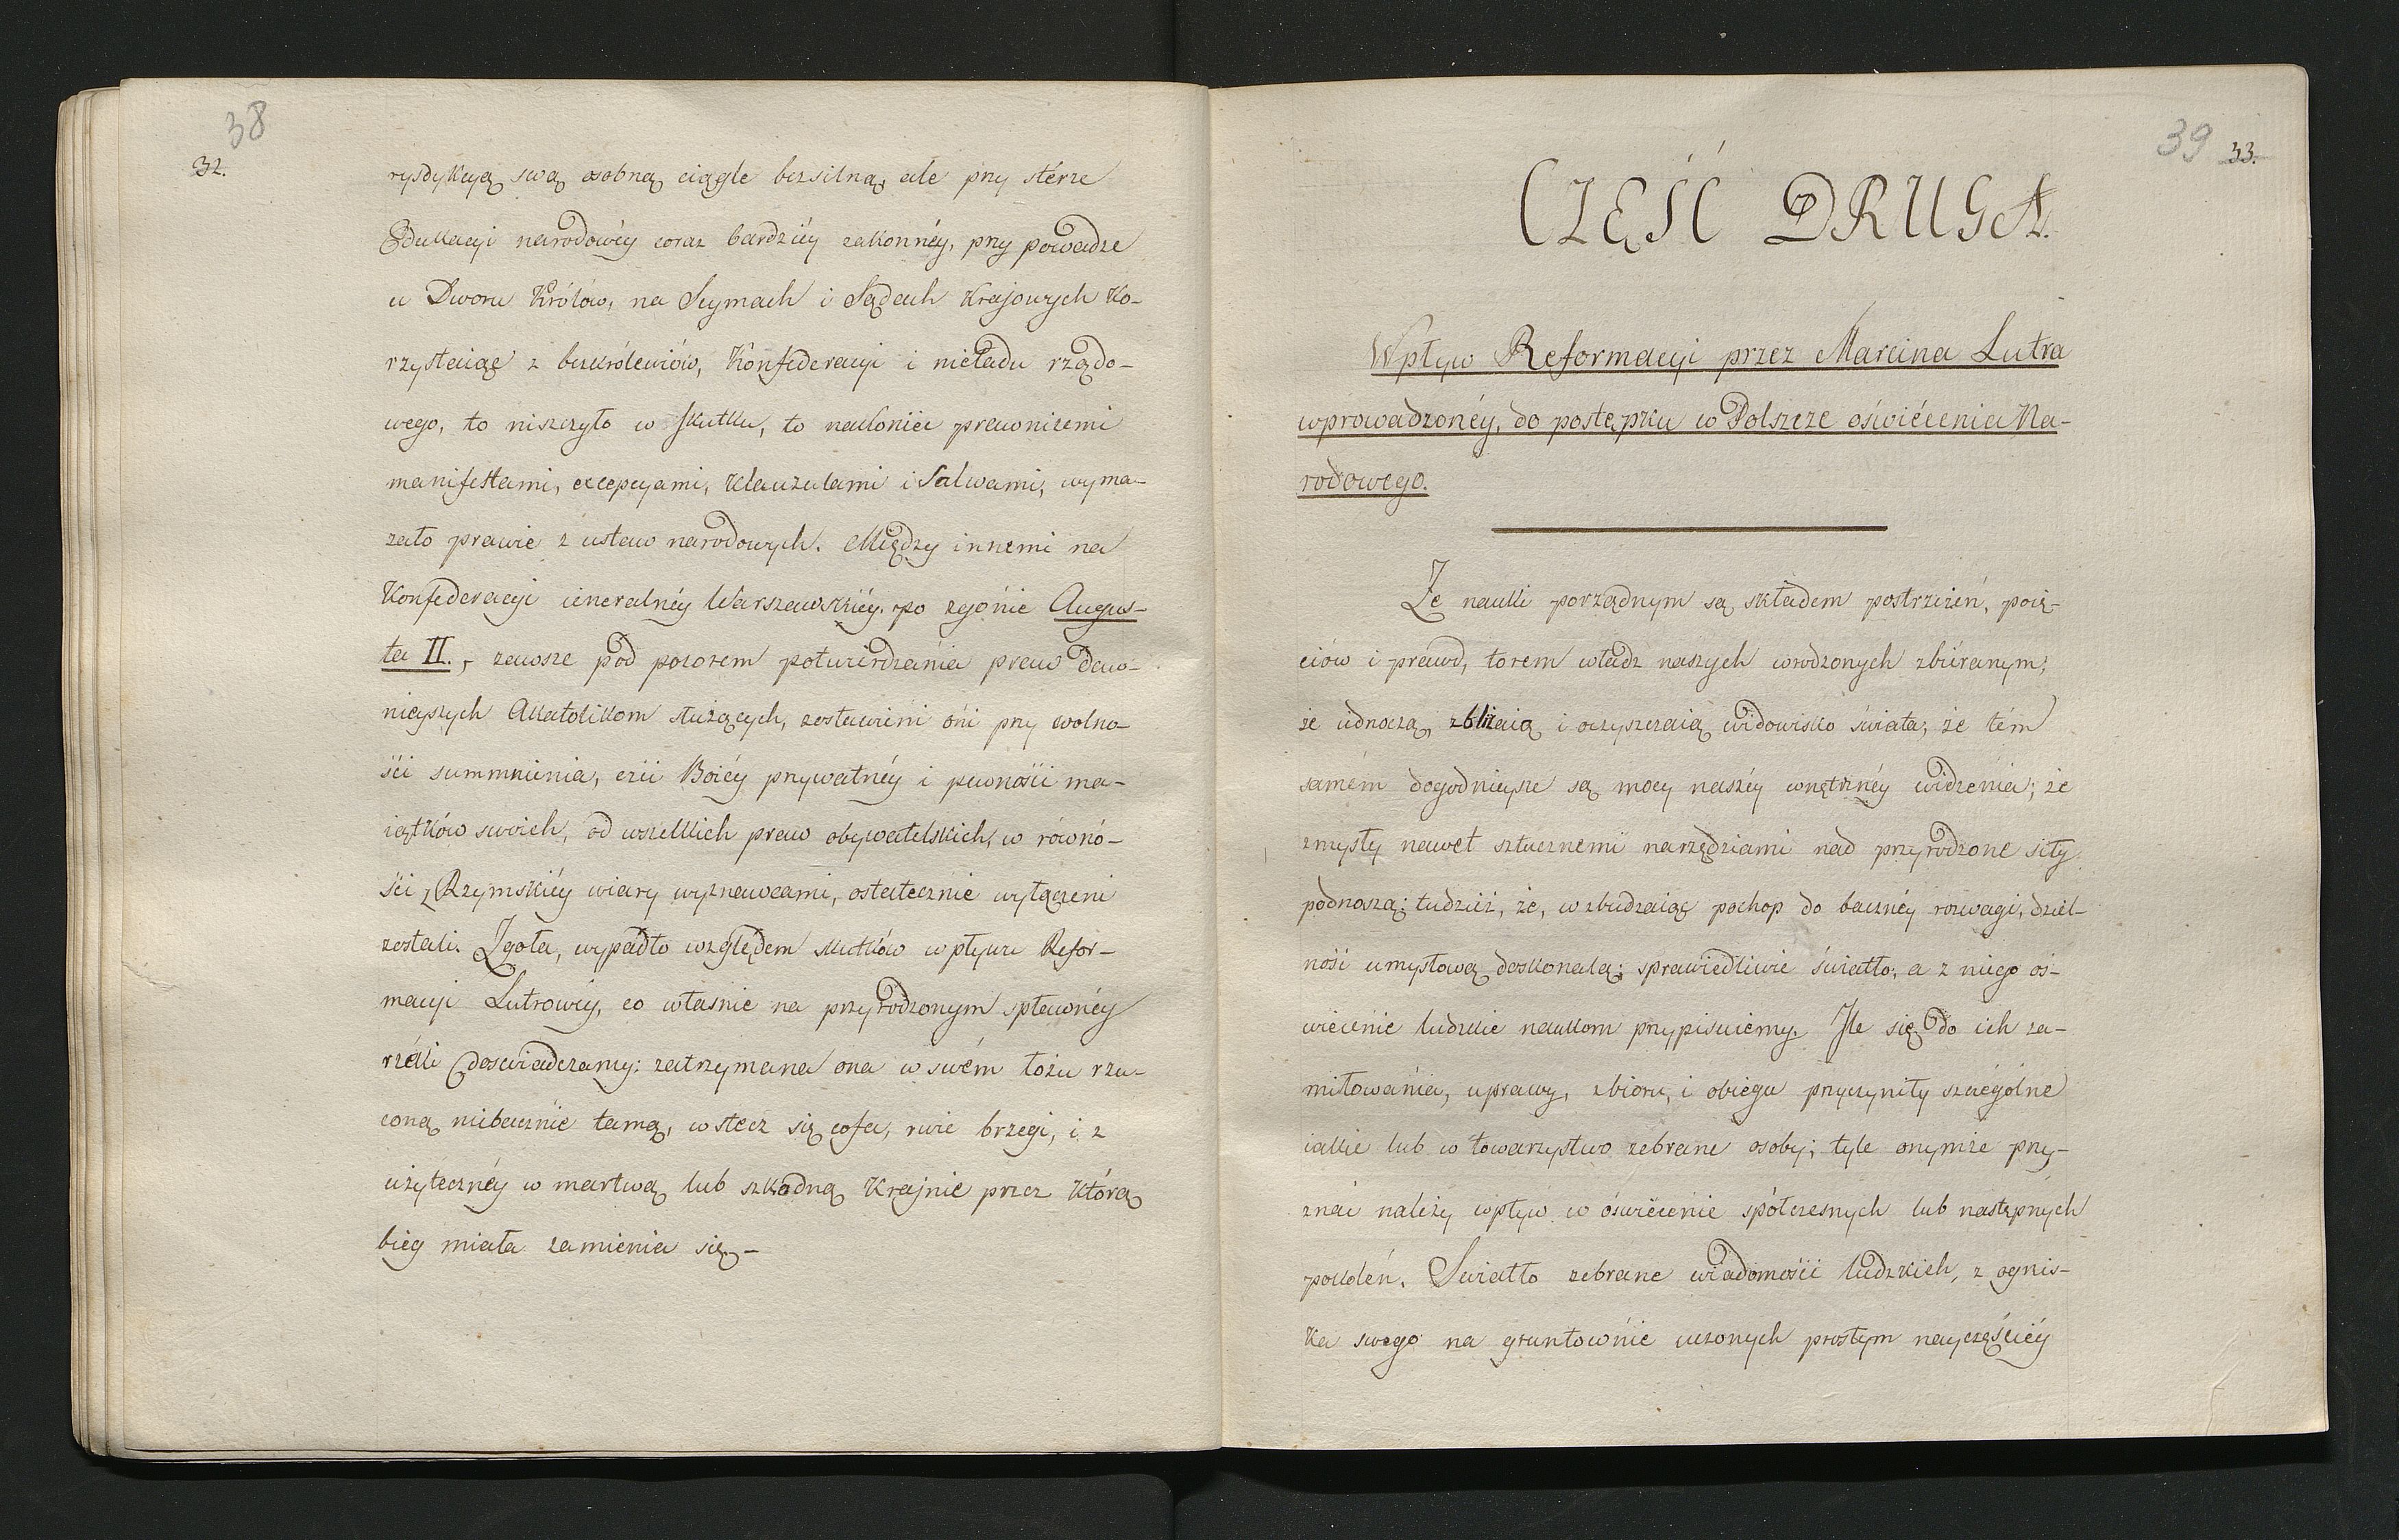 38
32.
rysdykcyą swą osobną ciągle bezsilną, ale przy stérze
Edukacyi narodowéy coraz bardziéy zakonnéy, przy powadze
u Dworu Królów, na Seymach i Sądach Krajowych Ko-
rzystaiąc z bezkrólewiów, Konfederacyi i nieładu rządo-
wego, to niszczyło w skutku, to nakoniec prawniczemi
manifestami, excepcyami, Klauzulami i Salwami, wyma-
zało prawie z ustaw narodowych. Między innemi na
Konfederacyi ieneralnéy Warszawskiéy po zgonie Augus-
ta II., zawsze pod pozorem potwierdzania praw daw-
nieyszych Akatolikom służących, zostawieni oni przy wolno-
ści summnienia, czci Bożéy prywatnéy i pewności ma-
iątków swoich, od wszelkich praw obywatelskich, w równo-
ści z Rzymskiéy wiary wyznawcami, ostatecznie wyłączeni
zostali. Zgoła, wypadło względem skutków wpływu Refor-
macyi Lutrowéy, co własnie na przyrodzonym spławnéy
rzéki doswiadczamy: zatrzymana ona w swém łożu rzu-
coną niebacznie tamą, wstecz się cofa, rwie brzegi, i z
użytecznéy w martwą lub szkodną Krajnie przez którą
bieg miała zamienia się.-
39
33.
CZĘŚĆ DRUGA.
Wpływ Reformacyi przez Marcina Lutra
wprowadzonéy, do postępku w Polszcze oświécenia Na-
rodowego.
Że nauki porządnym są składem postrzeżeń, poię-
ciów i prawd, torem władz naszych wrodzonych zbiéranym;
że ednoczą, zbliżaią i oczyszczaią widowisko świata; że tém
samém dogodnieysze są mocy naszéy wnętrznéy widzenia; że
zmysły nawet sztucznemi narzędziami nad przyrodzone siły
podnoszą; tudzież, że, wzbudzaiąc pochop do bacznéy rozwagi, dziel-
ność umysłową doskonalą; sprawiedliwie światło, a z niego oś-
wiecenie ludzkie naukom przypisuiemy. Ile się do ich za-
miłowania, uprawy, zbioru, i obiegu przyczyniły szczególne
iakie lub w towarzystwo zebrane osoby; tyle onymże przy-
znać należy wpływ w oświécenie spółczesnych lub następnych
pokoleń. Światło zebrane wiadomości ludzkich, z ognis-
ka swego na gruntownie uczonych prostym nayczęściéy